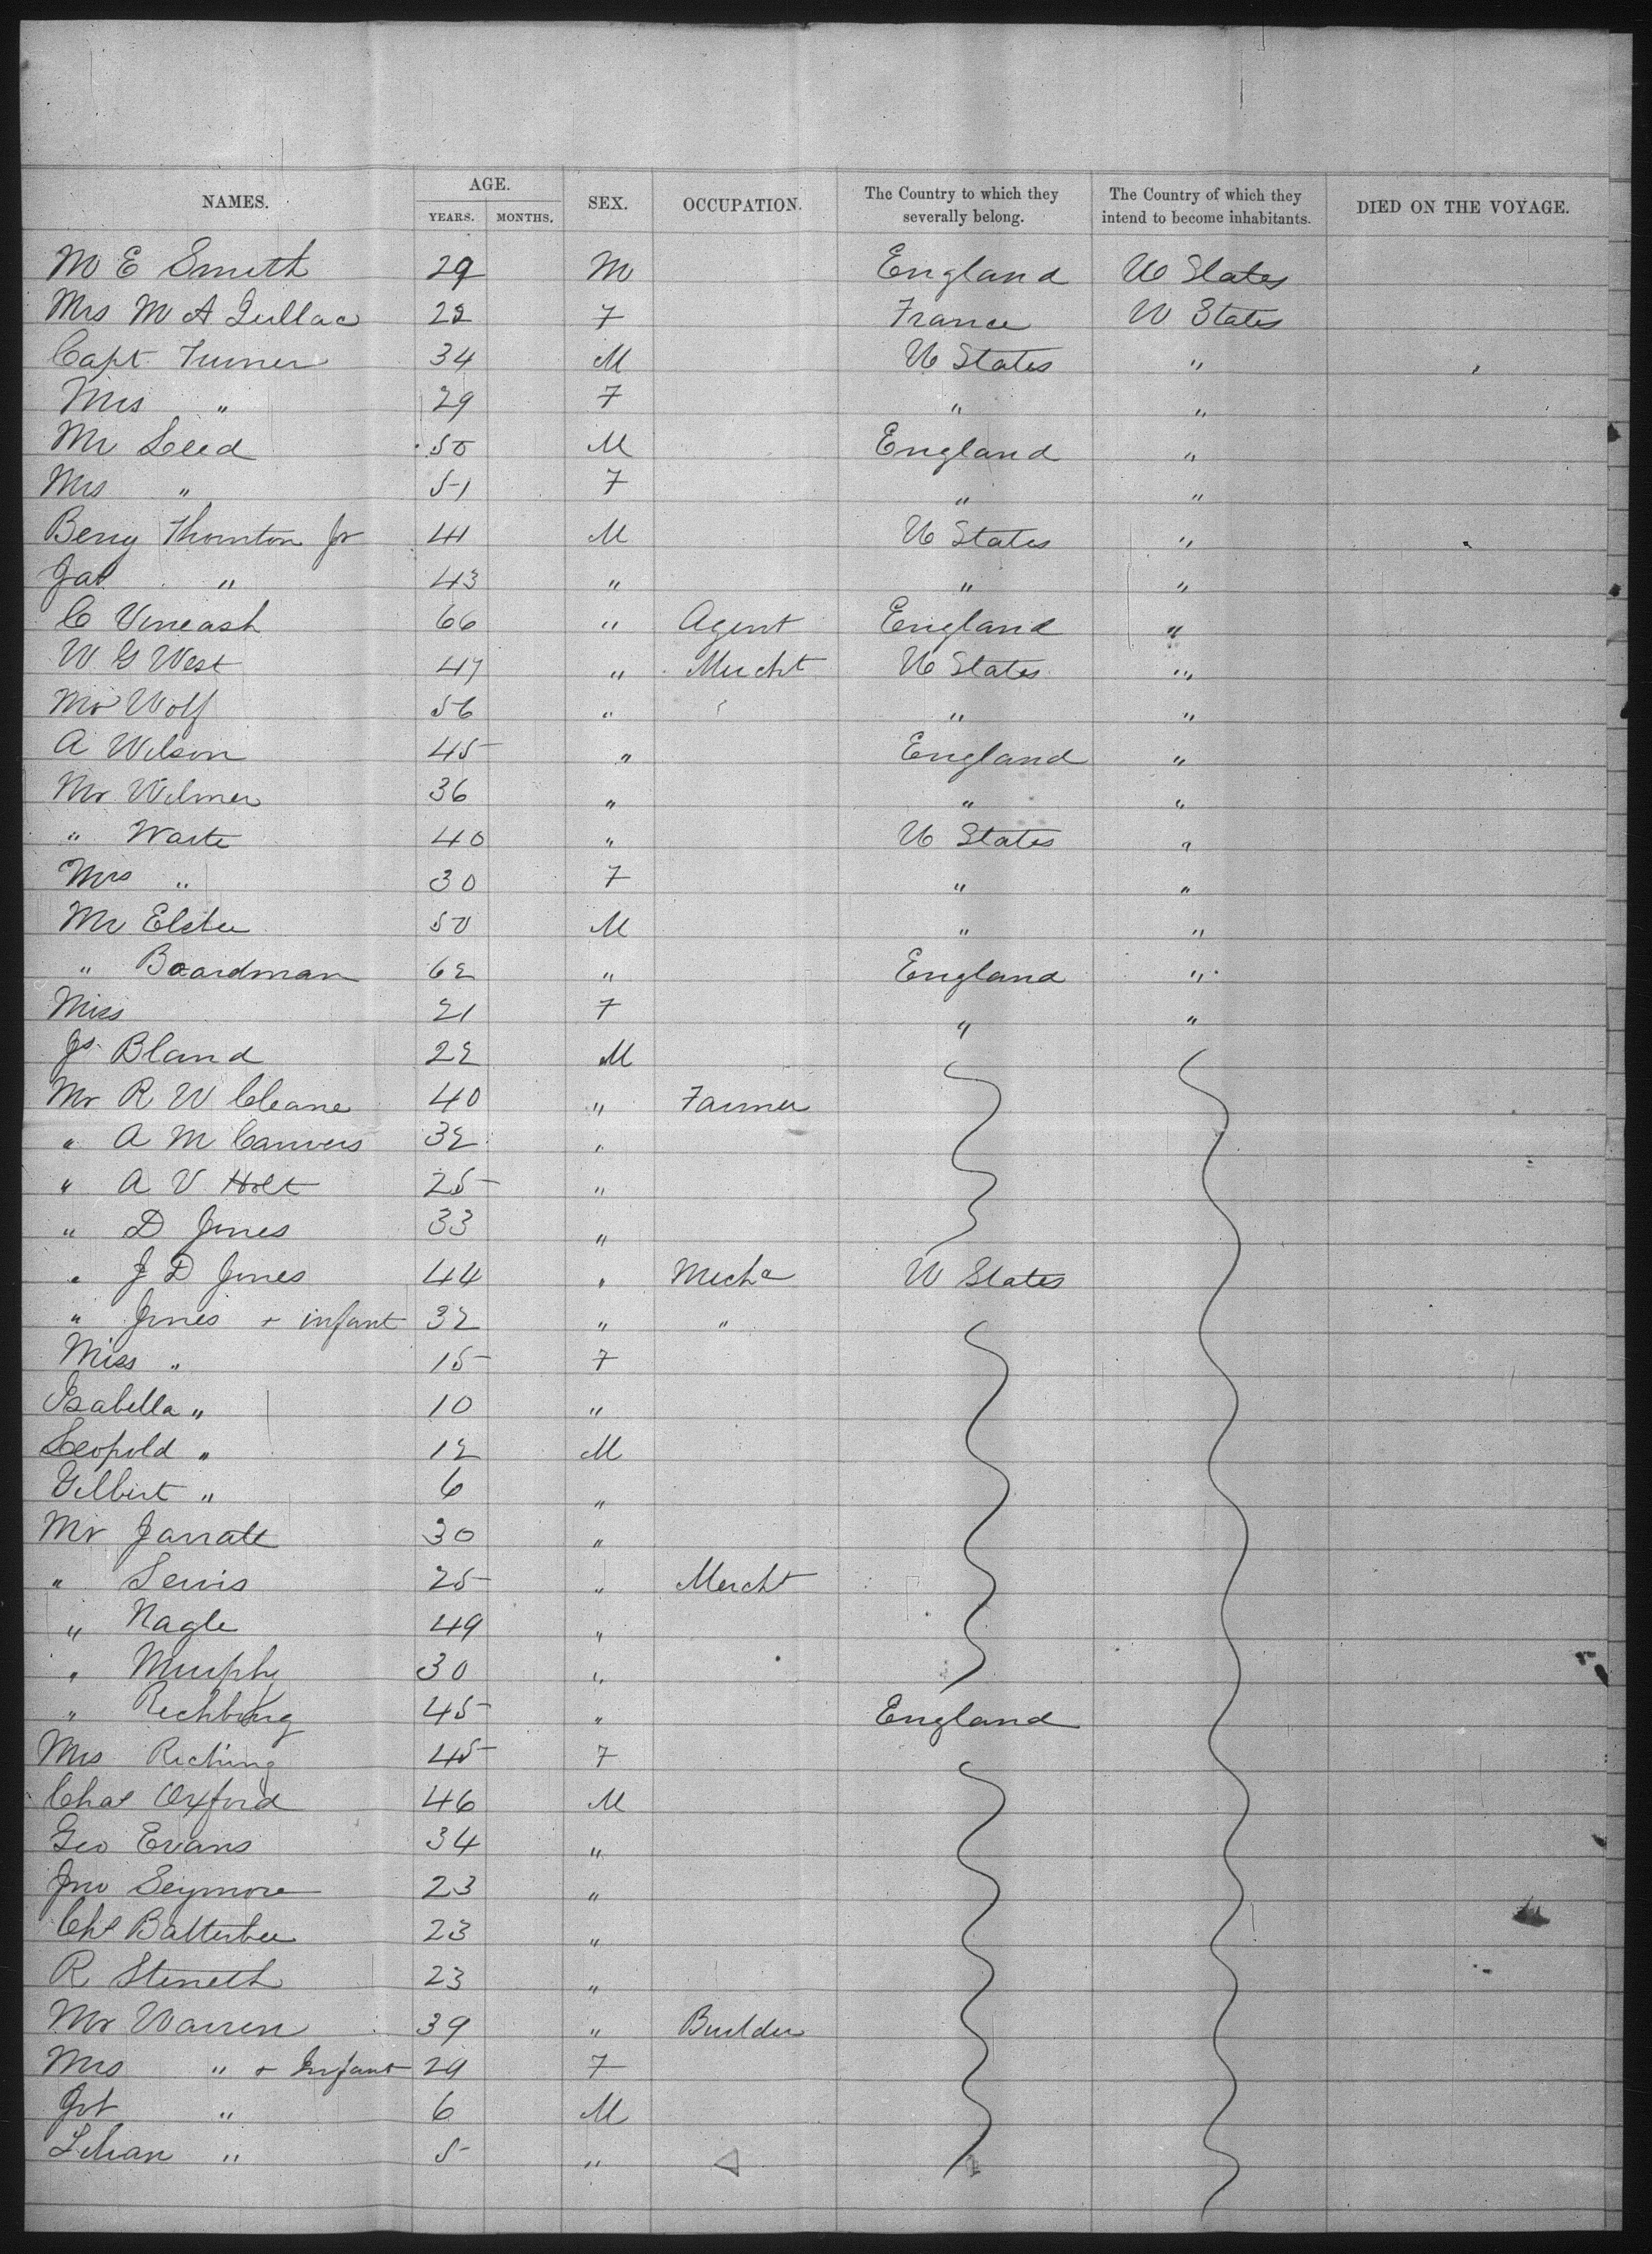 NAMES. AGE. YEARS. MONTHS. SEX. OCCUPATION. The Country to which they severally belong. The Country of which they intend to become inhabitants. DIED ON THE VOYAGE.
M E Smith 29 M England U States
Mrs M A 22 F France U States
Capt Turner 34 M U States "
Mrs " 29 F " "
Mr Leed 50 M England "
Mrs " 51 F " "
Benj Thornton Jr 41 M U States "
Jas " 43 " " "
C Vineash 66 " Agent England "
W G West 47 " Mercht U States "
Mr Wolf 56 " " "
A Wilson 45 " England "
Mr Wilmer 36 " " "
" Waite 40 " U States "
Mrs " 30 F " "
Mr 50 M " "
" Boardman 62 " England "
Miss 21 F " "
Js Bland 22 M
Mr R W Cleane 40 " Farmer
" A M Canvers 32 "
" A V Holt 25 "
" D Jones 33 "
" J D Jones 44 " Mecha U States
" Jones + infant 32 " "
Miss " 15 F
Isabella " 10 "
Leopold " 12 M
Gilbert " 6 "
Mr Jarratt 30 "
" Lewis 25 " Mercht
" Nagle 49 "
" Murphy 30 "
" 45 " England
Mrs Riching 45 F
Chas Oxford 46 M
Geo Evans 34 "
Jno Seymore 23 "
Chs Batterbee 23 "
R Steneth 23 "
Mr Warren 39 " Builder
Mrs " + Infant 29 F
" 6 M
Lilian " 5 "